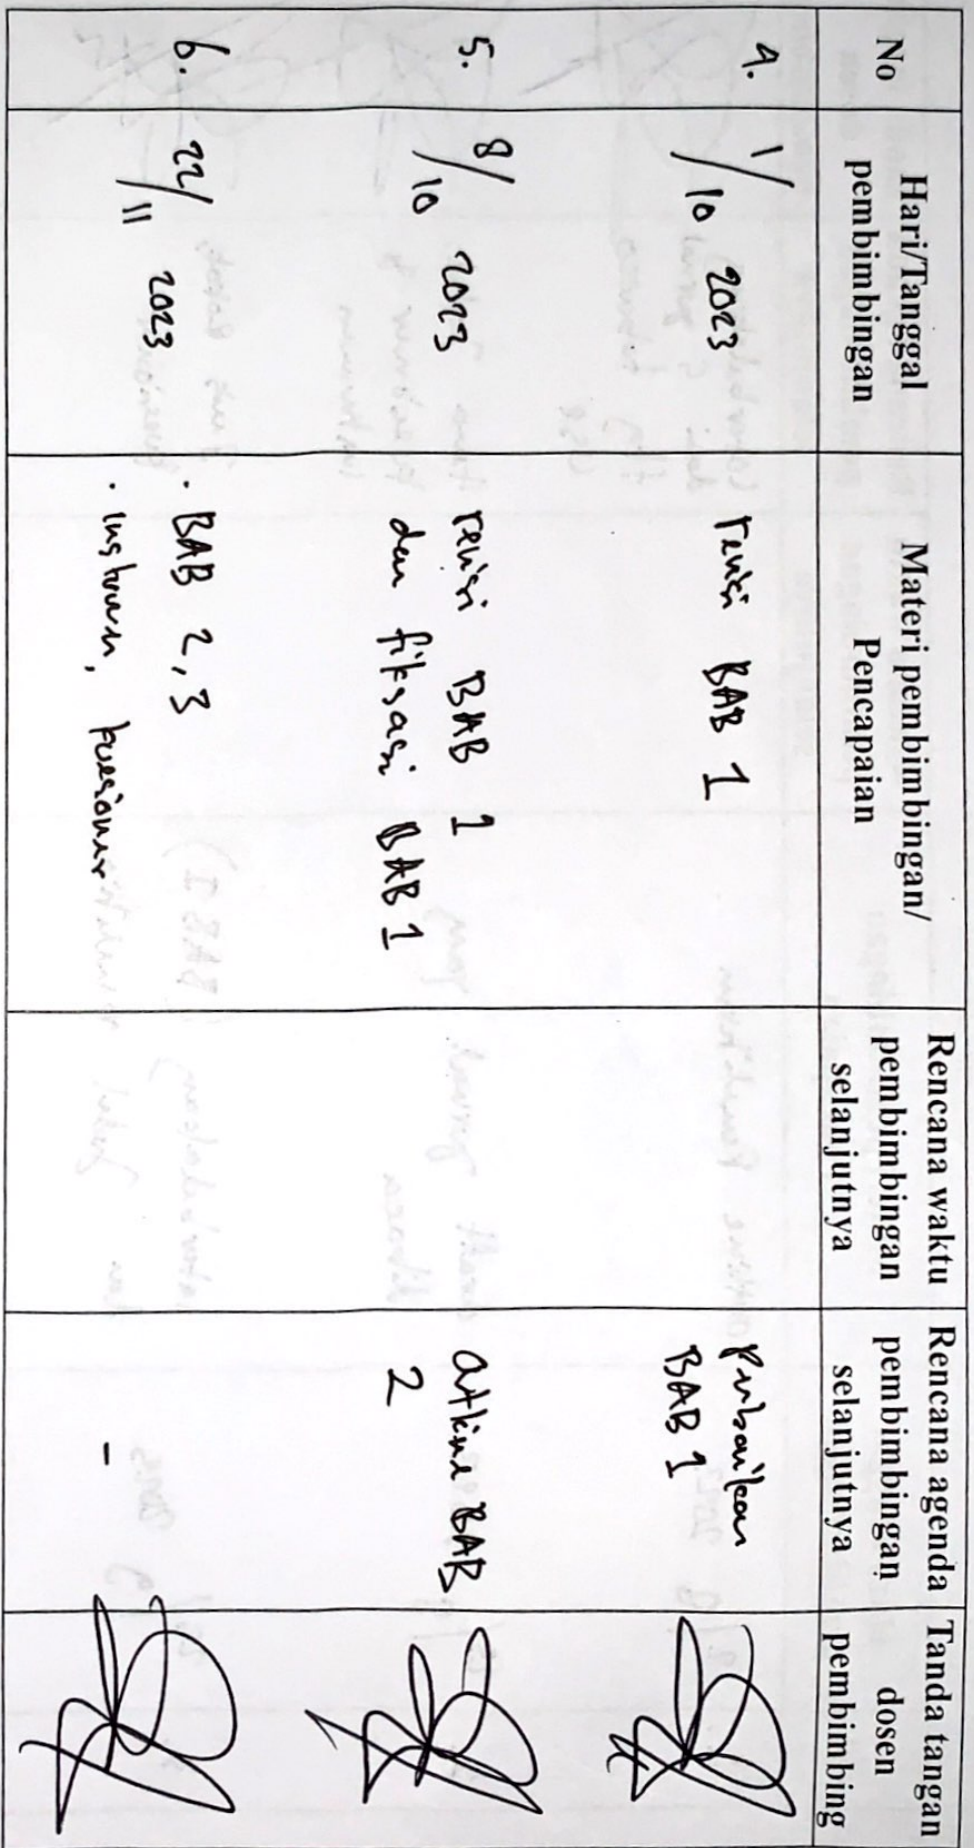 No
Hari/Tanggal
pembimbingan
Materi pembimbingan/
Pencapaian
Rencana waktu
pembimbingan
selanjutnya
Rencana agenda
pembimbingan
selanjutnya
Tanda tangan
dosen
pembimbing
4.
1/10 2023
revisi BAB 1
Perbaikan
BAB 1
5.
8/10 2023
revisi BAB 1
dan fiksasi BAB 1
BAB
2
6.
22/11 2023
. BAB 2, 3
. instrumen, kuesioner
-